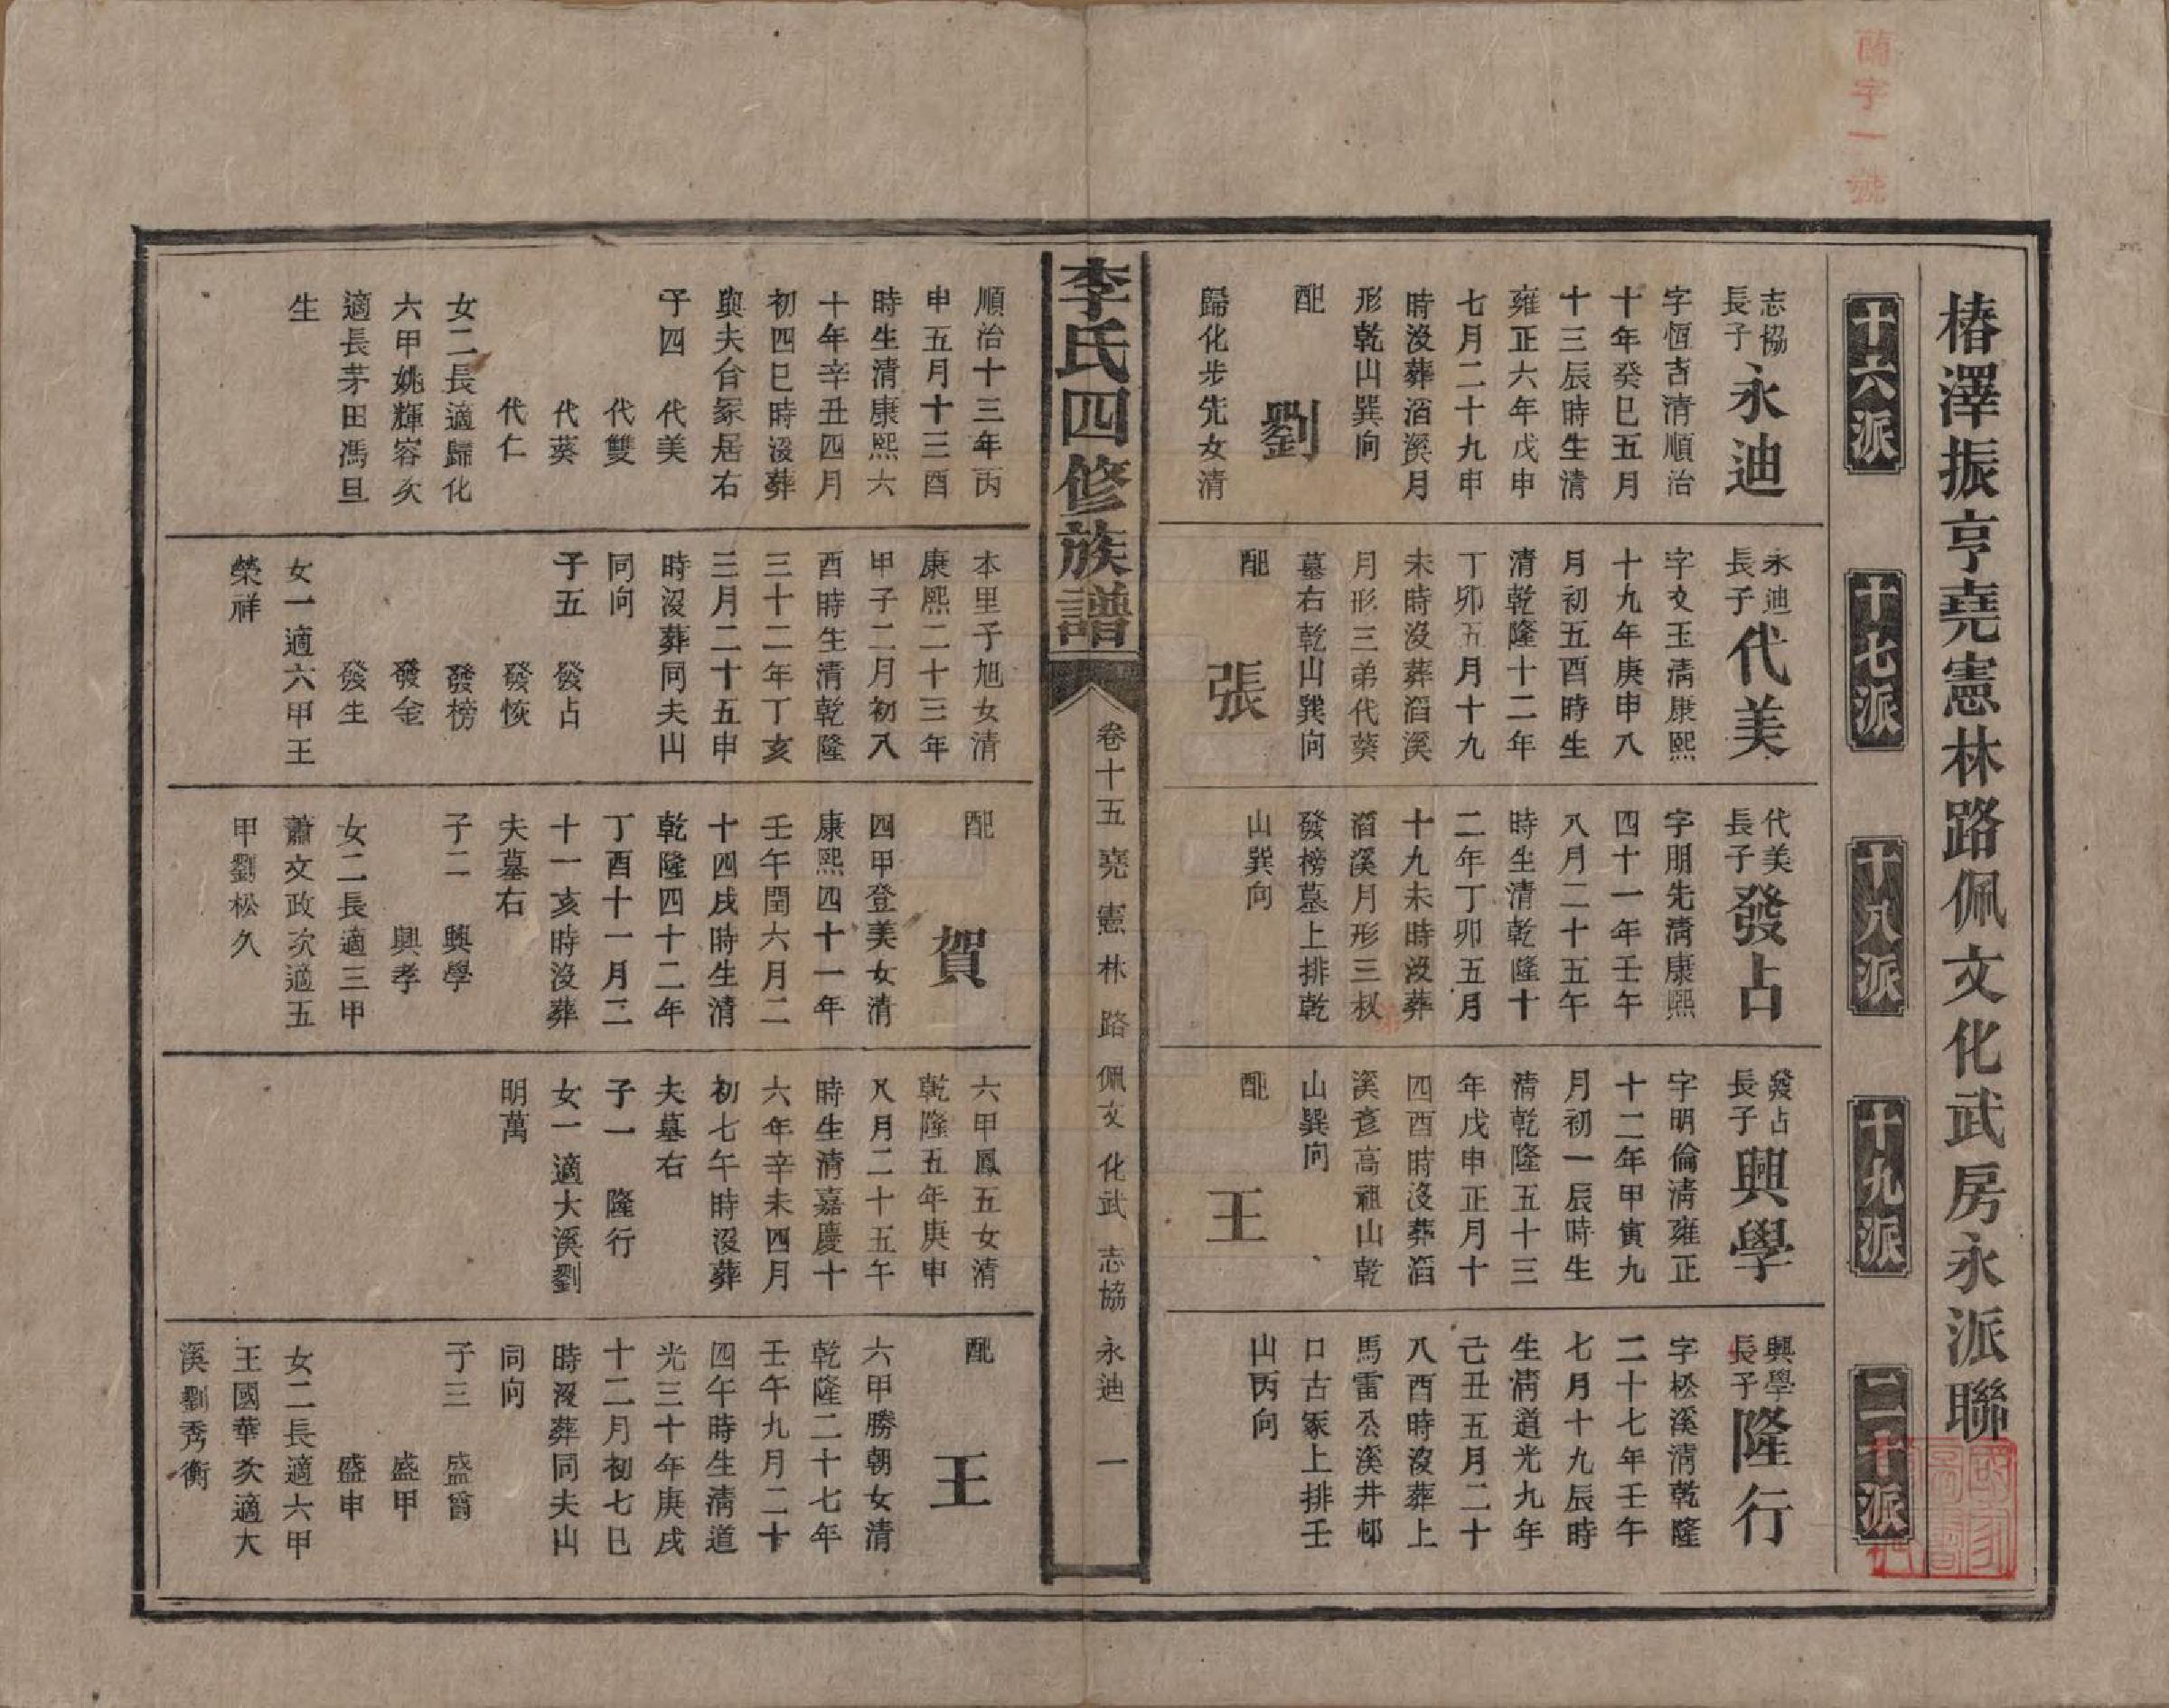 蘭字一號
椿澤振亨堯憲林路佩文化武房永派聯
十六派
十七派
十八派
十九派
二十派
志協長子永迪
字恆吉清順治
十年癸巳五月
十三辰時生清
雍正六年戊申
七月二十九申
時沒葬滔溪月
形乾山巽向
配
劉
歸化步先女清
順治十三年丙
申五月十三酉
時生清康熙六
十年辛丑四月
初四巳時沒葬
與夫合冢居右
子四 代美
代雙
代葵
代仁
女二長適歸化
六甲姚輝容次
適長茅田馮旦
生
永迪長子代美
字文玉清康熙
十九年庚申八
月初五酉時生
清乾隆十二年
丁卯五月十九
未時沒葬滔溪
月形三弟代葵
墓右乾山巽向
配
張
本里子旭女清
康熙二十三年
甲子二月初八
酉時生清乾隆
三十二年丁亥
三月二十五申
時沒葬同夫山
同向
子五 發占
發恢
發榜
發金
發生
女一適六甲王
榮祥
代美長子發占
字朋先清康熙
四十一年壬午
八月二十五午
時生清乾隆十
二年丁卯五月
十九未時沒葬
滔溪月形三叔
發榜墓上排乾
山巽向
配
賀
四甲登美女清
康熙四十一年
壬午閏六月二
十四戌時生清
乾隆四十二年
丁酉十一月二
十一亥時沒葬
夫墓右
子二 興學
興孝
女二長適三甲
蕭文政次適五
甲劉松久
發占長子興學
字明倫清雍正
十二年甲寅九
月初一辰時生
清乾隆五十三
年戊申正月十
四酉時沒葬滔
溪彥高祖山乾
山巽向
配
王
六甲鳳五女清
乾隆五年庚申
八月二十五午
時生清嘉慶十
六年辛未四月
初七午時沒葬
夫墓右
子一 隆行
女一適大溪劉
明萬
興學長子隆行
字松溪清乾隆
二十七年壬午
七月十九辰時
生清道光九年
己丑五月二十
八酉時沒葬上
馬雷公溪井邨
口古冢上排壬
山丙向
配
王
六甲勝朝女清
乾隆二十七年
壬午九月二十
四午時生清道
光三十年庚戌
十二月初七巳
時沒葬同夫山
同向
子三 盛當
盛甲
盛申
女二長適六甲
王國華次適大
溪劉秀衡
李氏四修族譜
卷十五堯憲林路佩文化武 志協 永迪 一